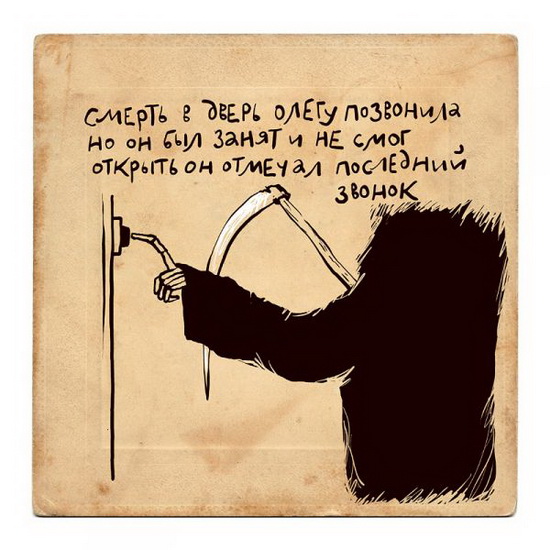 смерть в дверь олегу позвонила
но он был занят и не смог
открыть он отмечал последний
звонок